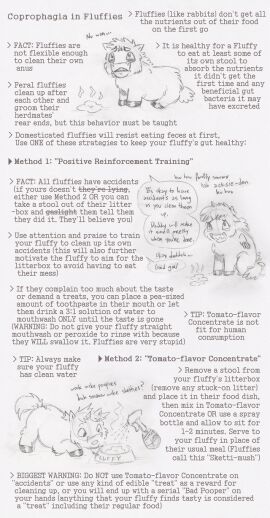 Coprophagia in Fluffies
> Fluffies (like rabbits) don't get all
the nutrients out of their food
on the first go
> FACT: Fluffies are
not flexible enough
to clean their own
anus
> It is healthy for a Fluffy
to eat at least some of
its own stool to
absorb the nutrients
it didn't get the
first time and any
beneficial gut
bacteria it may
have excreted
> Feral fluffies
clean up after
each other and
groom their
herdmates'
rear ends, but this behavior must be taught
> Domesticated fluffies will resist eating feces at first,
Use ONE of these strategies to keep your fluffy's gut healthy:
Method 1: "Positive Reinforcement Training"
> FACT: All fluffies have accidents
(if yours doesn't they're lying,
either use Method 2 OR you can
take a stool out of their litter
-box and gaslight them tell them
they did it. They'll believe you)
> Use attention and praise to train
your fluffy to clean up its own
accidents (this will also further
motivate the fluffy to aim for the
litterbox to avoid having to eat
their mess)
> If they complain too much about the taste
or demand a treats, you can place a pea-sized
amount of toothpaste in their mouth or let
them drink a 3:1 solution of water to
mouthwash ONLY until the taste is gone
(WARNING: Do not give your fluffy straight
mouthwash or peroxide to rinse with because
they WILL swallow it. Fluffies are very stupid)
> TIP: Tomato-flavor
Concentrate is not
fit for human
consumption
> TIP: Always make
sure your fluffy
has clean water
Method 2: "Tomato-flavor Concentrate"
> Remove a stool from
your fluffy's litterbox
(remove any stuck-on litter)
and place it in their food dish,
then mix in Tomato-flavor
Concentrate OR use a spray
bottle and allow to sit for
1-2 minutes. Serve to
your fluffy in place of
their usual meal (Fluffies
call this "Sketti-mush")
FLUFFY
> BIGGEST WARNING: Do NOT use Tomato-flavor Concentrate on
"accidents" or use any kind of edible "treat" as a reward for
cleaning up, or you will end up with a serial "Bad Pooper" on
your hands (anything that your fluffy finds tasty is considered
a "treat" including their regular food)